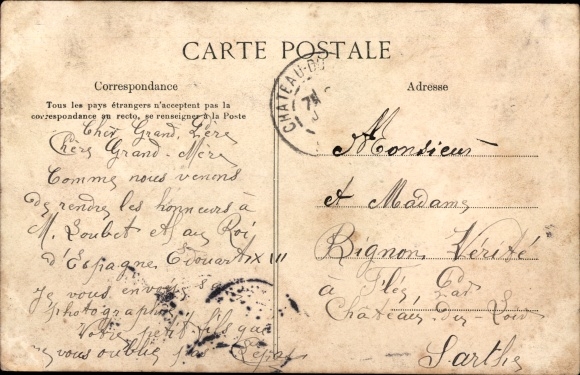 CARTE POSTALE
Correspondance
Tous les pays étrangers n'acceptent pas la
correspondance au recto, se renseigner à la Poste
Cher Grand. Père
Chère Grand. Mère
Comme nous venons
de rendre les honneurs à
M. Loubet et au Roi
d'Espagne, Edouard XIII
Je vous envoie sa
photographie
Votre petit fils qui
ne vous oublie pas
Adresse
CHATEAU-DU
Monsieur
et Madame
Bignon, Vérité
à Flée, Par
Château, du, Loir
Sarthe